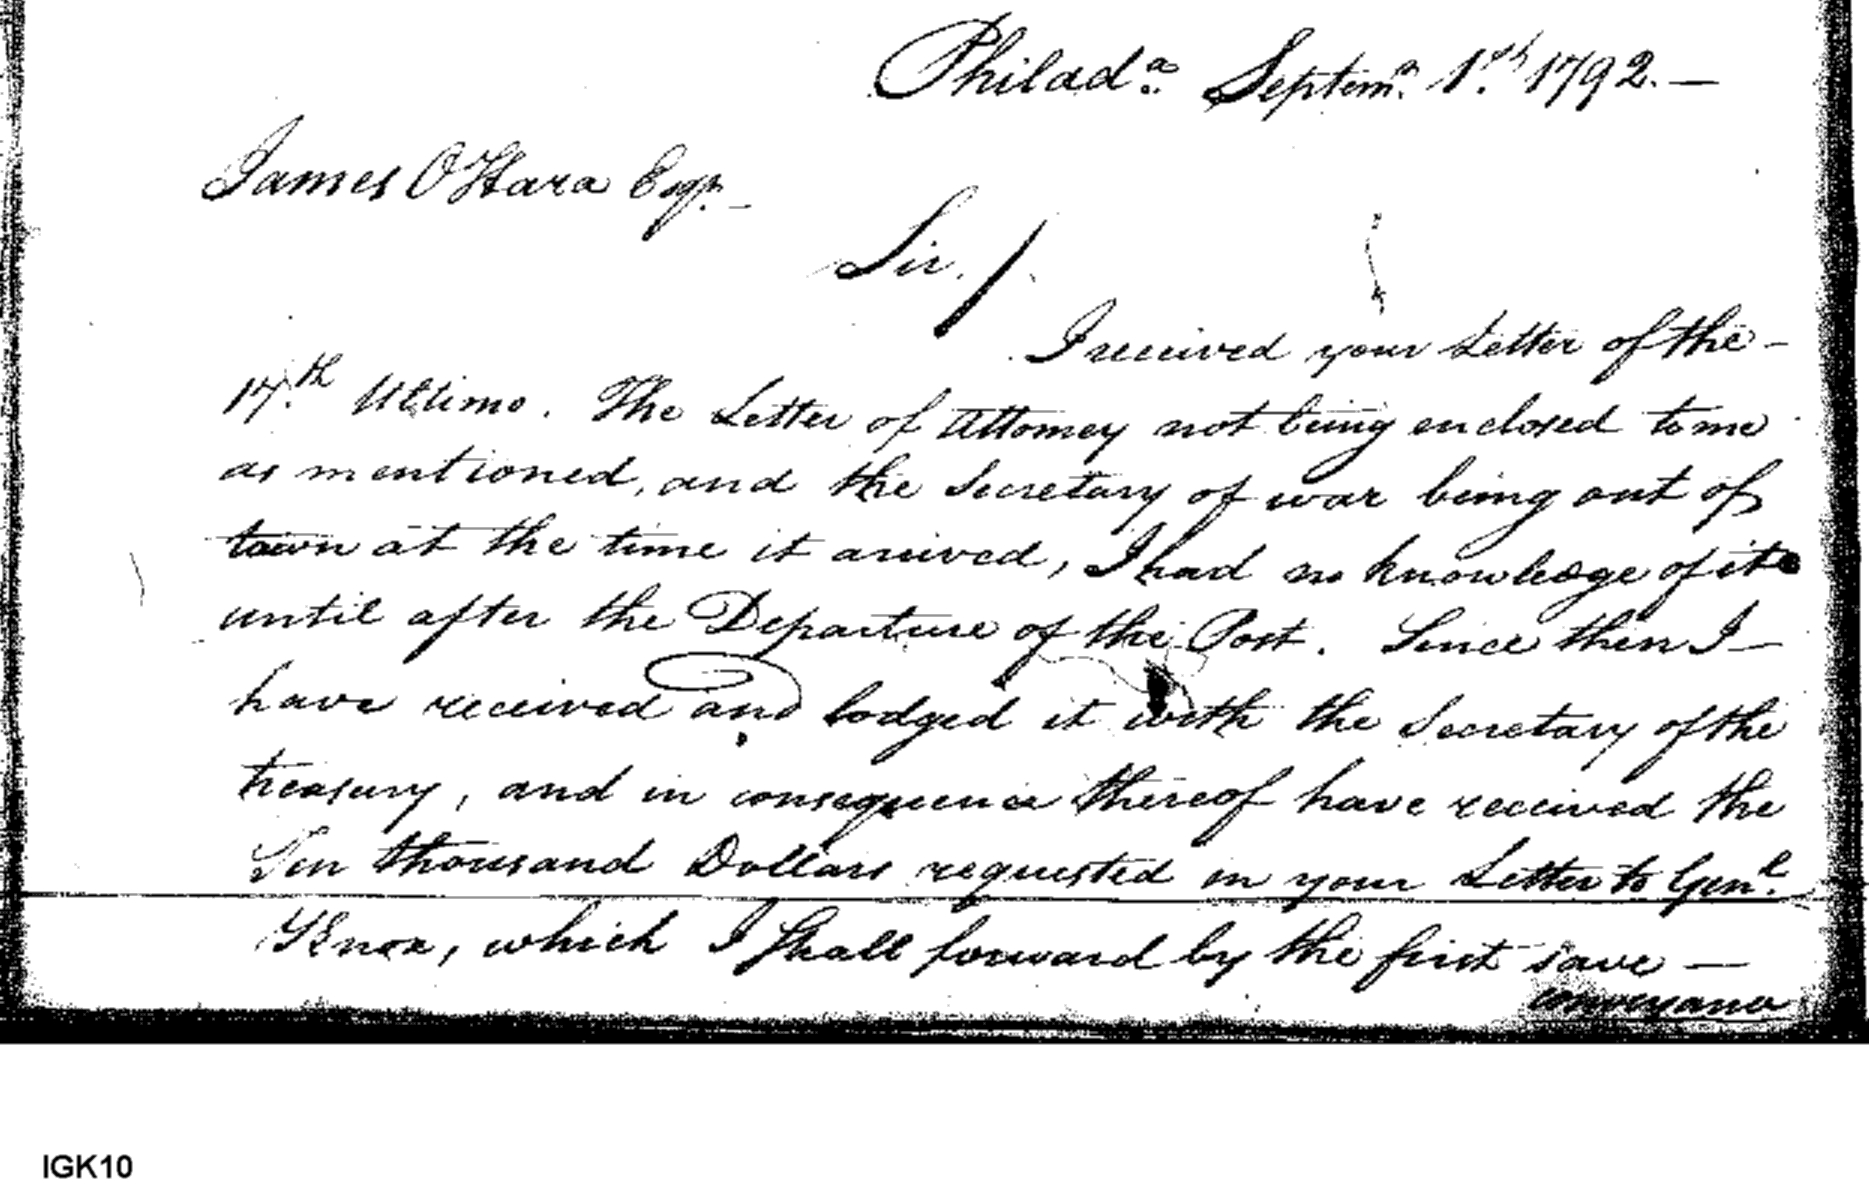 Philad.a Septemr. 1.st 1792. —
James O Hara Esqr. —
Sir. /
I received your Letter of the —
17.th Ultimo. The Letter of Attorney not being enclosed to me
as mentioned, and the Secretary of war being out of
town at the time it arrived, I had no knowledge of it
until after the Departure of the Post. Since then I —
have received and lodged it with the Secretary of the
treasury, and in consequence thereof have received the
Ten thousand Dollars requested in your Letter to Gen.l
Knox, which I shall forward by the first save —
conveyance
IGK10